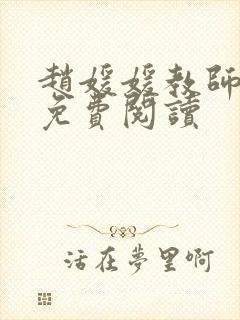 趙媛媛教師
免費閱讀
活在夢里啊